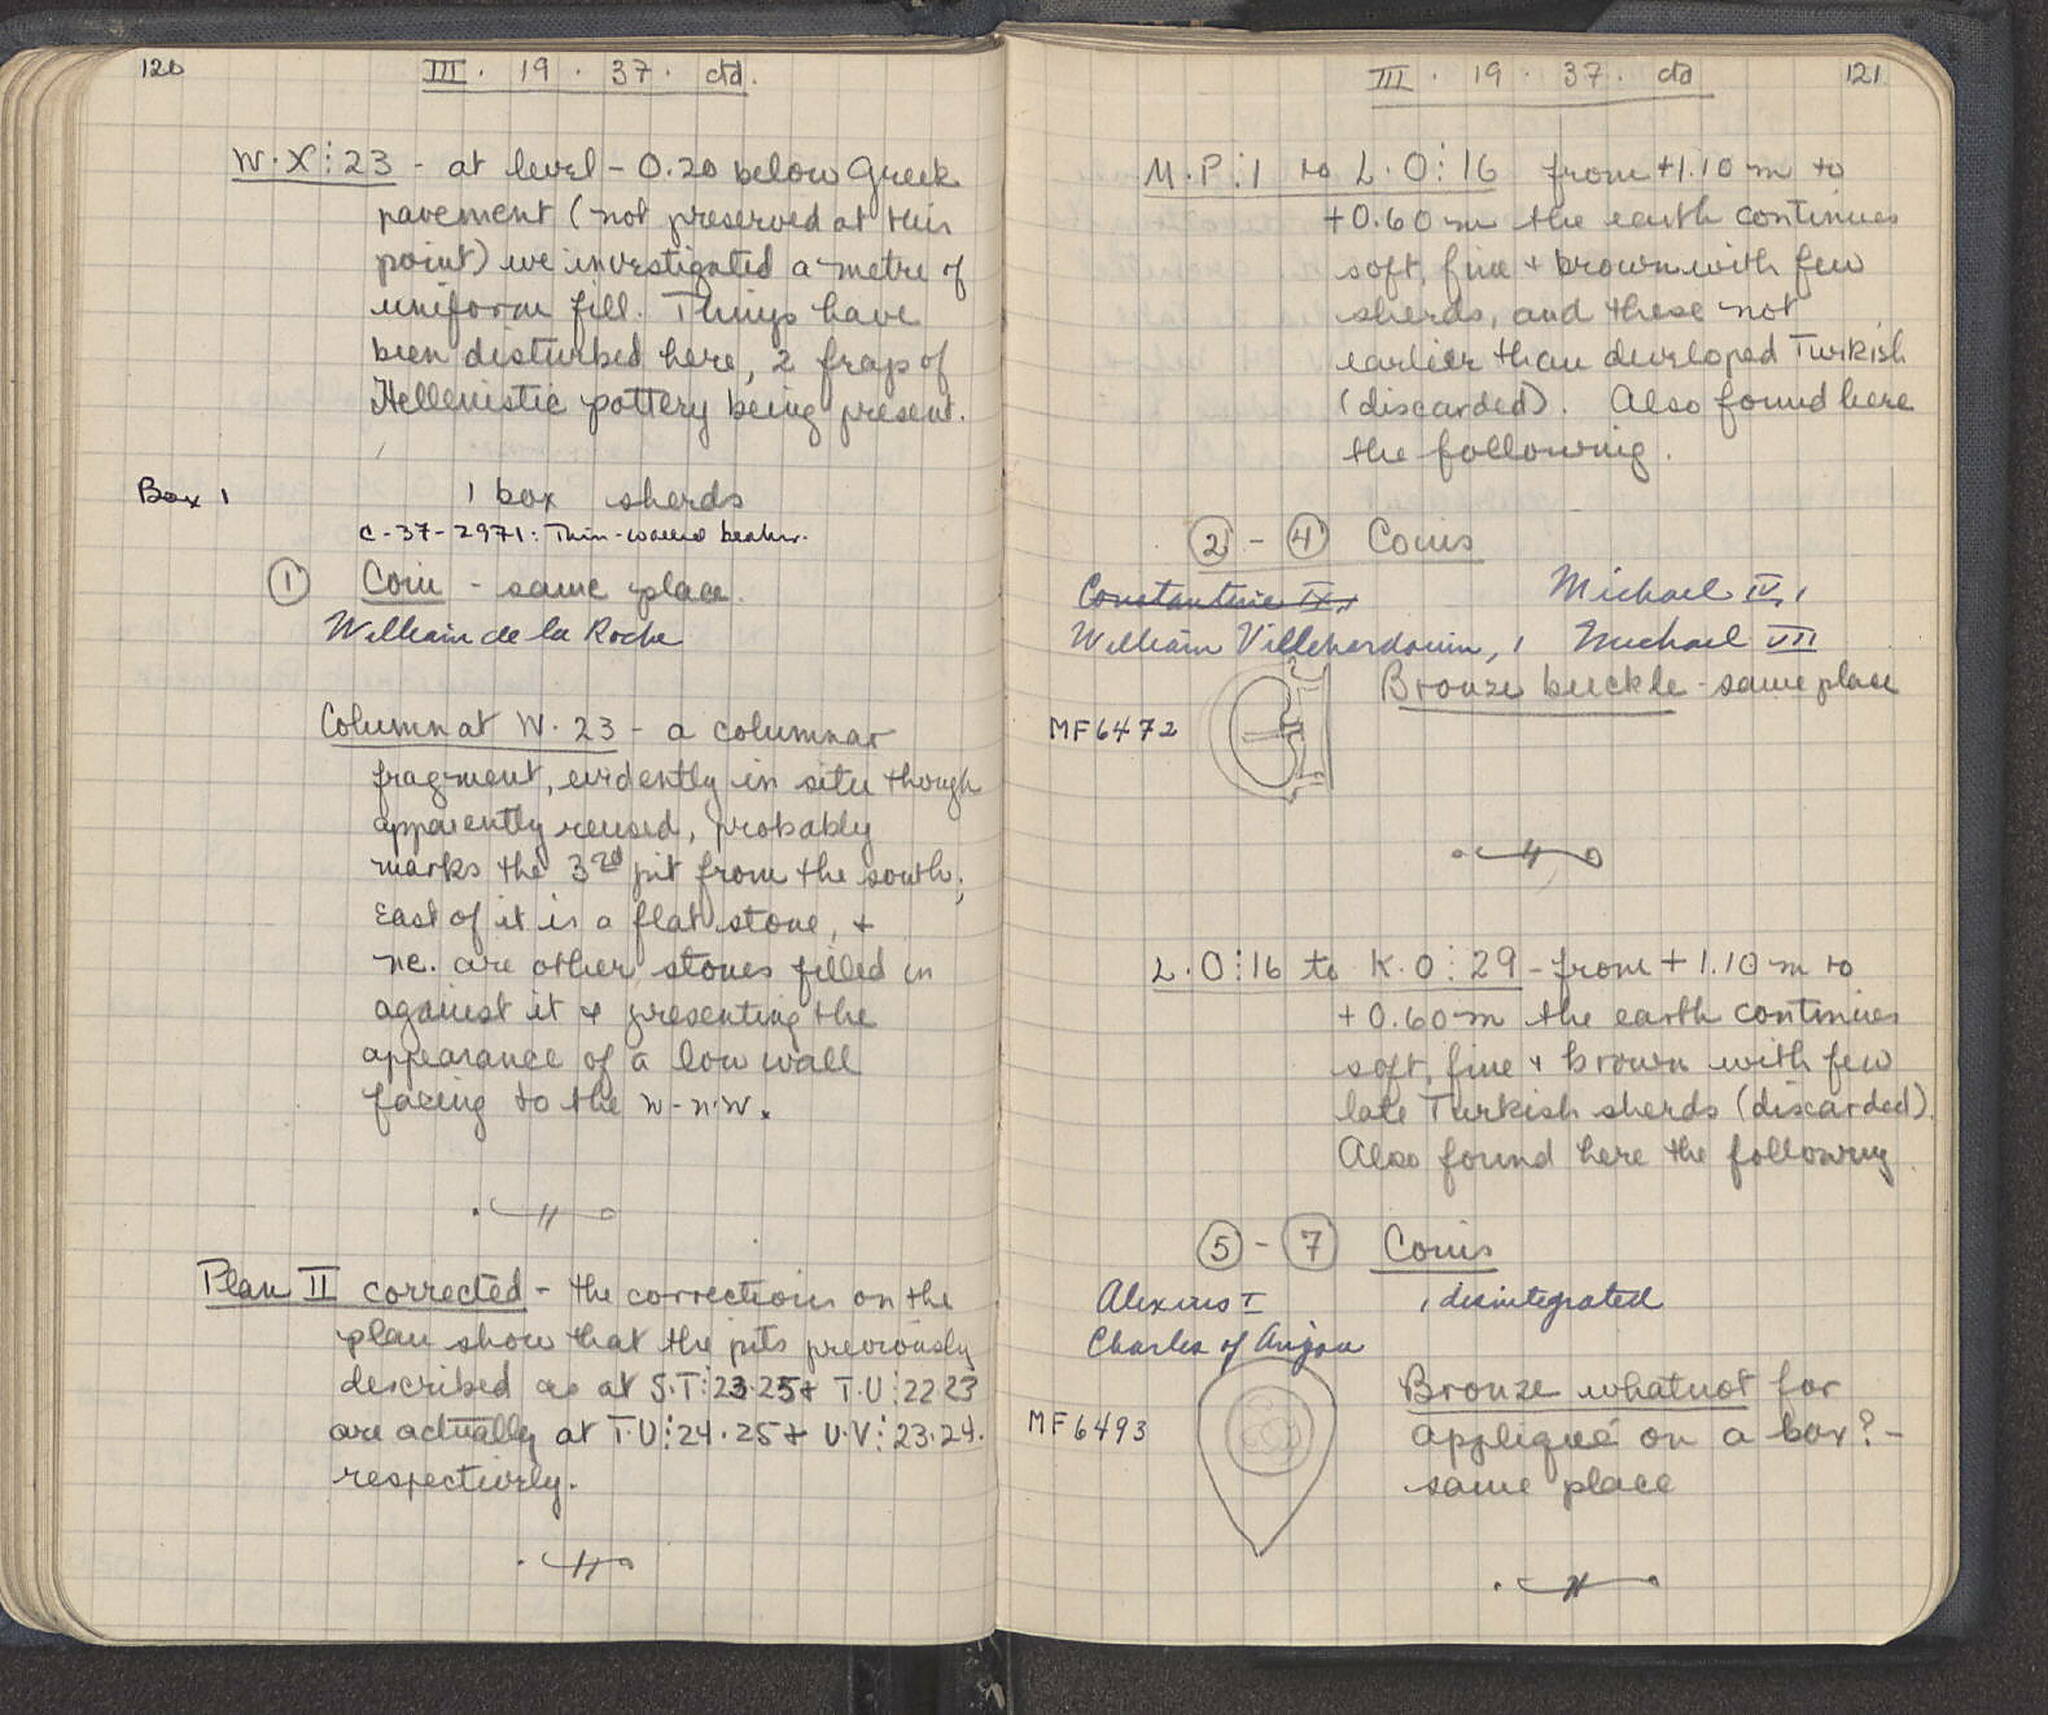 120
III · 19 · 37 · ctd.
W·X:23 - at level - 0.20 below Greek
pavement (not preserved at this
point) we investigated a metre of
uniform fill. Things have
been disturbed here, 2 frags of
Hellenistic pottery being present.
Box 1
1 box sherds
C-37-2971: Thin-walled beaker.
1 Coin - same place.
William de la Roche
Column at W·23 - a columnar
fragment, evidently in situ though
apparently reused, probably
marks the 3rd pit from the south;
East of it is a flat stone, +
ne. are other stones filled in
against it + presenting the
appearance of a low wall
facing to the w-n·w.
Plan II corrected - the corrections on the
plan show that the pits previously
described as at S·T:23·25 + T·U:22·23
are actually at T·U:24·25 + U·V:23·24.
respectively.
121
III · 19 · 37 · ctd
M·P:1 to L·O:16 from +1.10 m to
+0.60 m the earth continues
soft, fine + brown with few
sherds, and these not
earlier than developed Turkish
(discarded). Also found here
the following.
2 - 4 Coins
Constantine IX, Michael IV, 1
William Villehardouin, 1 Michael VII
Bronze buckle - same place
MF6472
L·O:16 to K·O:29 - from +1.10 m to
+0.60 m the earth continues
soft, fine + brown with few
late Turkish sherds (discarded).
Also found here the following.
5 - 7 Coins
Alexius I , disintegrated
Charles of Anjou
Bronze whatnot for
MF6493
appliqué on a box? -
same place